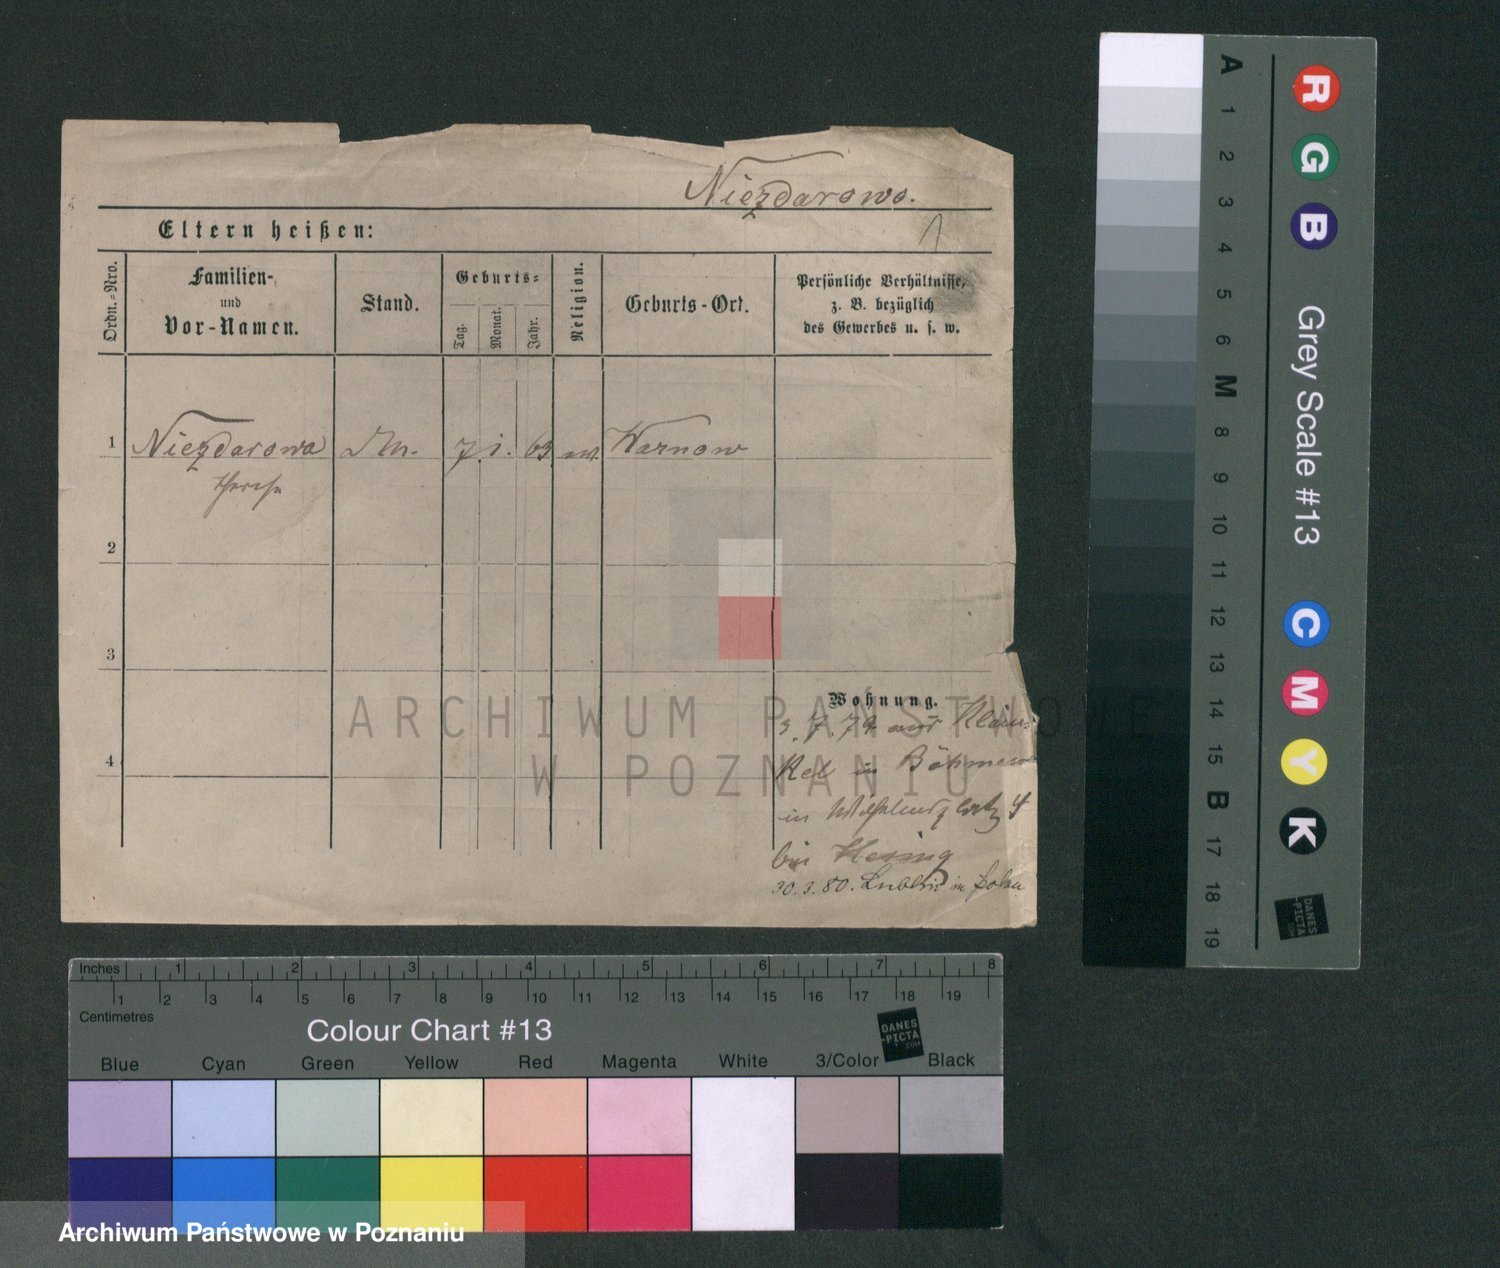 Niezdarowo.
1
Eltern heißen:
Ordn.-Nro.
Familien-
und
Vor-Namen.
Stand.
Geburts-
Tag.
Monat.
Jahr.
Religion.
Geburts-Ort.
Persönliche Verhältnisse,
z. B. bezüglich
des Gewerbes u. s. w.
1 Niezdarowa 7 1. 63 Warnow
2
3
4
Wohnung.
3. 7. 79 aus
in Böhmen
in
bei
30. 3. 80. Lublin in Polen
ARCHIWUM PAŃSTWOWE
W POZNANIU
A 1 2 3 4 5 6 M 8 9 10 11 12 13 14 15 B 17 18 19
R G B
Grey Scale #13
C M Y K
DANES
-PICTA
.COM
Inches 1 2 3 4 5 6 7 8
1 2 3 4 5 6 7 8 9 10 11 12 13 14 15 16 17 18 19
Centimetres
Colour Chart #13
DANES
-PICTA
.COM
Blue Cyan Green Yellow Red Magenta White 3/Color Black
Archiwum Państwowe w Poznaniu